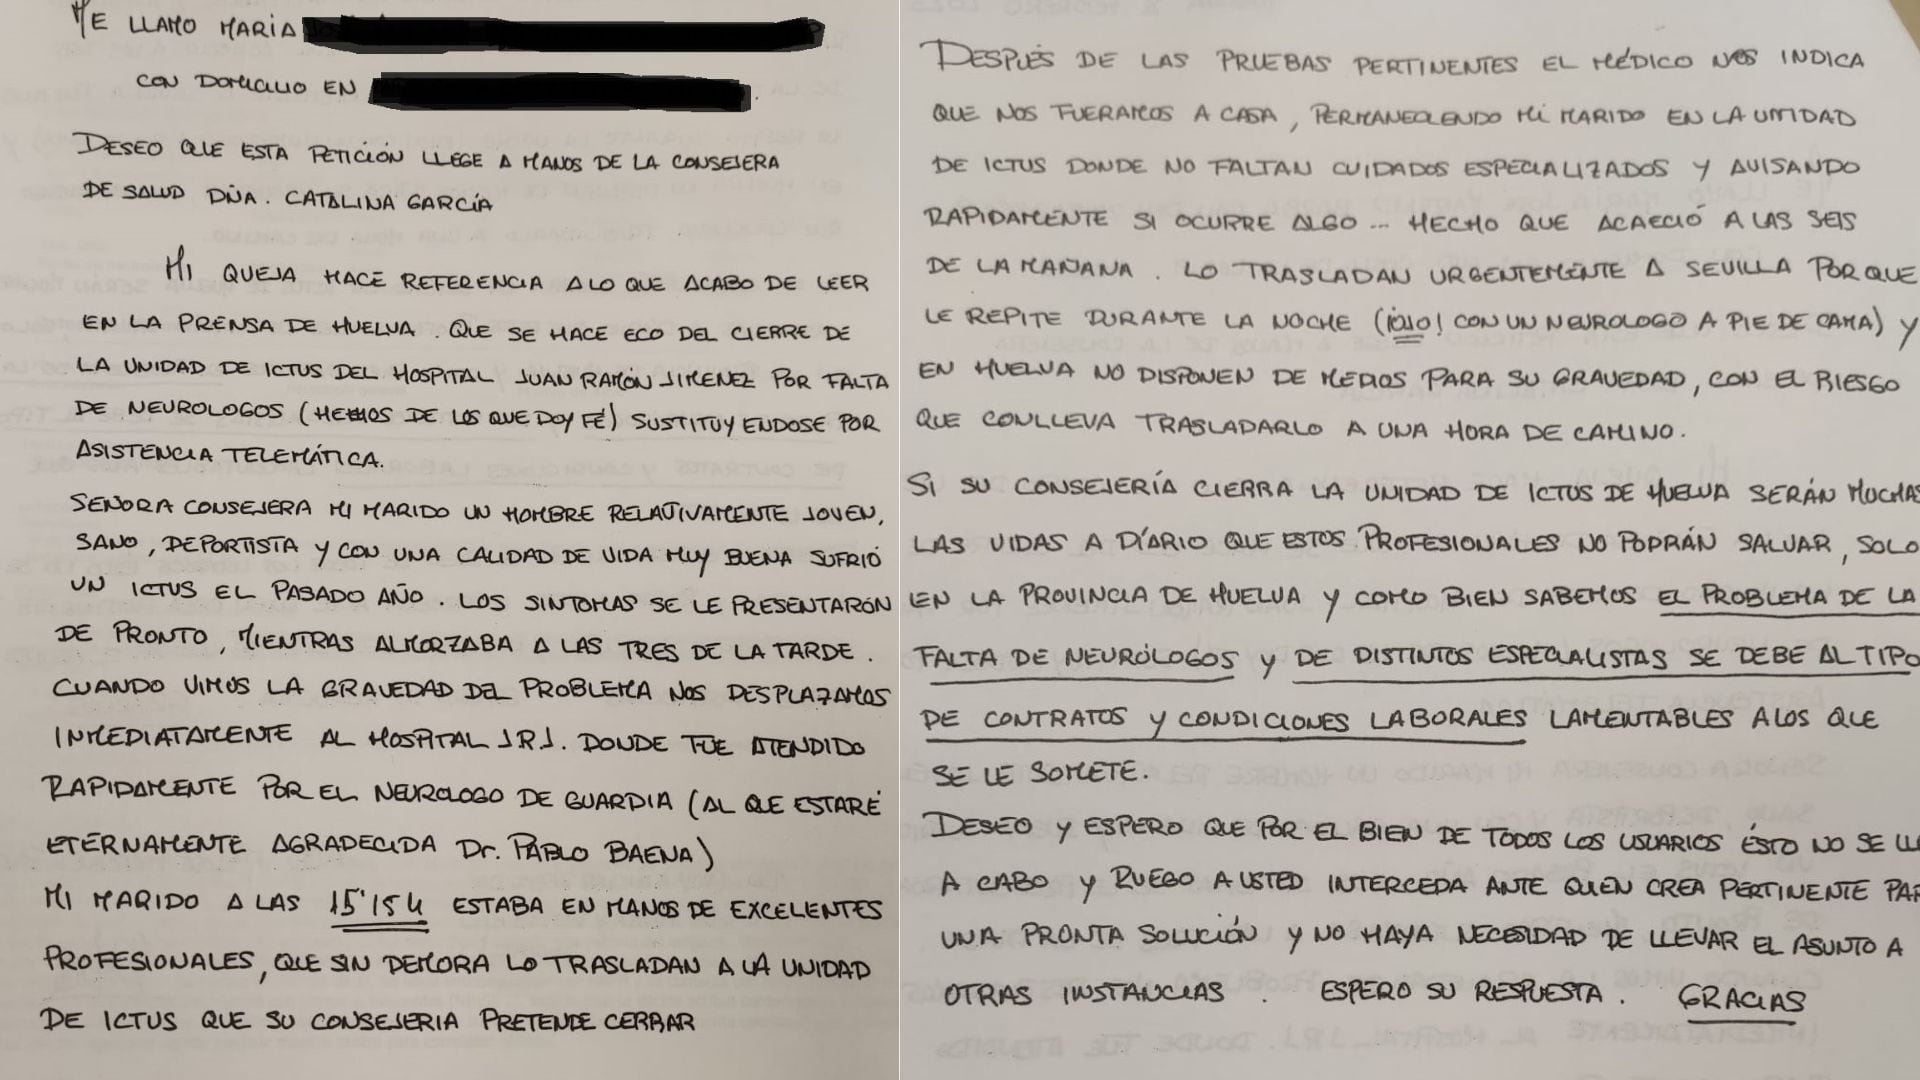 ME LLAMO MARIA
CON DOMICILIO EN
DESEO QUE ESTA PETICIÓN LLEGE A MANOS DE LA CONSEJERA
DE SALUD DÑA. CATALINA GARCÍA
MI QUEJA HACE REFERENCIA A LO QUE ACABO DE LEER
EN LA PRENSA DE HUELVA. QUE SE HACE ECO DEL CIERRE DE
LA UNIDAD DE ICTUS DEL HOSPITAL JUAN RAMÓN JIMENEZ POR FALTA
DE NEUROLOGOS (HECHOS DE LOS QUE DOY FÉ) SUSTITUYENDOSE POR
ASISTENCIA TELEMÁTICA.
SEÑORA CONSEJERA MI MARIDO UN HOMBRE RELATIVAMENTE JOVEN,
SANO, DEPORTISTA Y CON UNA CALIDAD DE VIDA MUY BUENA SUFRIÓ
UN ICTUS EL PASADO AÑO. LOS SINTOMAS SE LE PRESENTARÓN
DE PRONTO, MIENTRAS ALMORZABA A LAS TRES DE LA TARDE.
CUANDO VIMOS LA GRAVEDAD DEL PROBLEMA NOS DESPLAZAMOS
INMEDIATAMENTE AL HOSPITAL J.R.J. DONDE FUE ATENDIDO
RAPIDAMENTE POR EL NEUROLOGO DE GUARDIA (AL QUE ESTARÉ
ETERNAMENTE AGRADECIDA Dr. PABLO BAENA)
MI MARIDO A LAS 15'15H ESTABA EN MANOS DE EXCELENTES
PROFESIONALES, QUE SIN DEMORA LO TRASLADAN A LA UNIDAD
DE ICTUS QUE SU CONSEJERIA PRETENDE CERRAR
DESPUÉS DE LAS PRUEBAS PERTINENTES EL MÉDICO NOS INDICA
QUE NOS FUERAMOS A CASA, PERMANECIENDO MI MARIDO EN LA UNIDAD
DE ICTUS DONDE NO FALTAN CUIDADOS ESPECIALIZADOS Y AVISANDO
RAPÍDAMENTE SI OCURRE ALGO... HECHO QUE ACAECIÓ A LAS SEIS
DE LA MAÑANA. LO TRASLADAN URGENTEMENTE A SEVILLA PORQUE
LE REPITE DURANTE LA NOCHE (¡OJO! CON UN NEUROLOGO A PIE DE CAMA) Y
EN HUELVA NO DISPONEN DE MEDIOS PARA SU GRAVEDAD, CON EL RIESGO
QUE CONLLEVA TRASLADARLO A UNA HORA DE CAMINO.
SI SU CONSEJERÍA CIERRA LA UNIDAD DE ICTUS DE HUELVA SERÁN MUCHAS
LAS VIDAS A DÍARIO QUE ESTOS PROFESIONALES NO PODRÁN SALVAR, SOLO
EN LA PROVINCIA DE HUELVA Y COMO BIEN SABEMOS EL PROBLEMA DE LA
FALTA DE NEURÓLOGOS Y DE DISTINTOS ESPECIALISTAS SE DEBE AL TIPO
DE CONTRATOS Y CONDICIONES LABORALES LAMENTABLES A LOS QUE
SE LE SOMETE.
DESEO Y ESPERO QUE POR EL BIEN DE TODOS LOS USUARIOS ÉSTO NO SE
A CABO Y RUEGO A USTED INTERCEDA ANTE QUIEN CREA PERTINENTE PAR
UNA PRONTA SOLUCIÓN Y NO HAYA NECESIDAD DE LLEVAR EL ASUNTO A
OTRAS INSTANCIAS. ESPERO SU RESPUESTA. GRACIAS